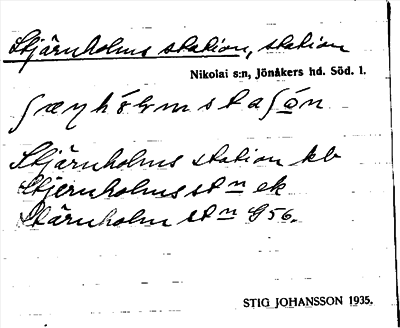 Stjärnholms station, station
Nikolai s:n, Jönåkers hd. Söd. l.
Stjärnholms station kb
Stjernholms stn ek
Stärnholm stn G56.
STIG JOHANSSON 1935.